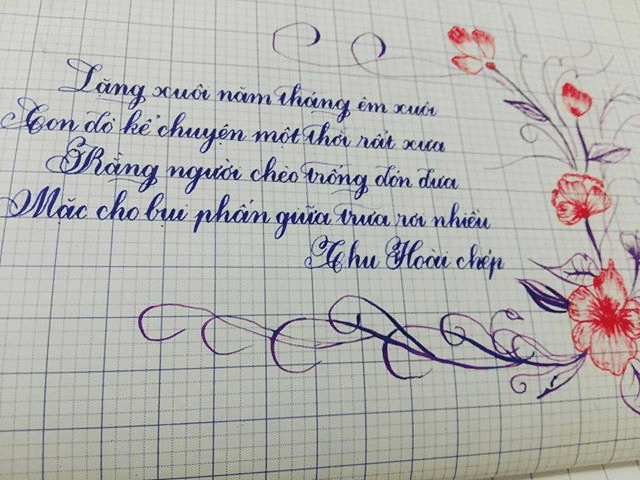 Lặng xuôi năm tháng êm xuôi
Con đò kể chuyện một thời rất xưa
Rằng người chèo trống đón đưa
Mặc cho bụi phấn giữa trưa rơi nhiều
Thu Hoài chép